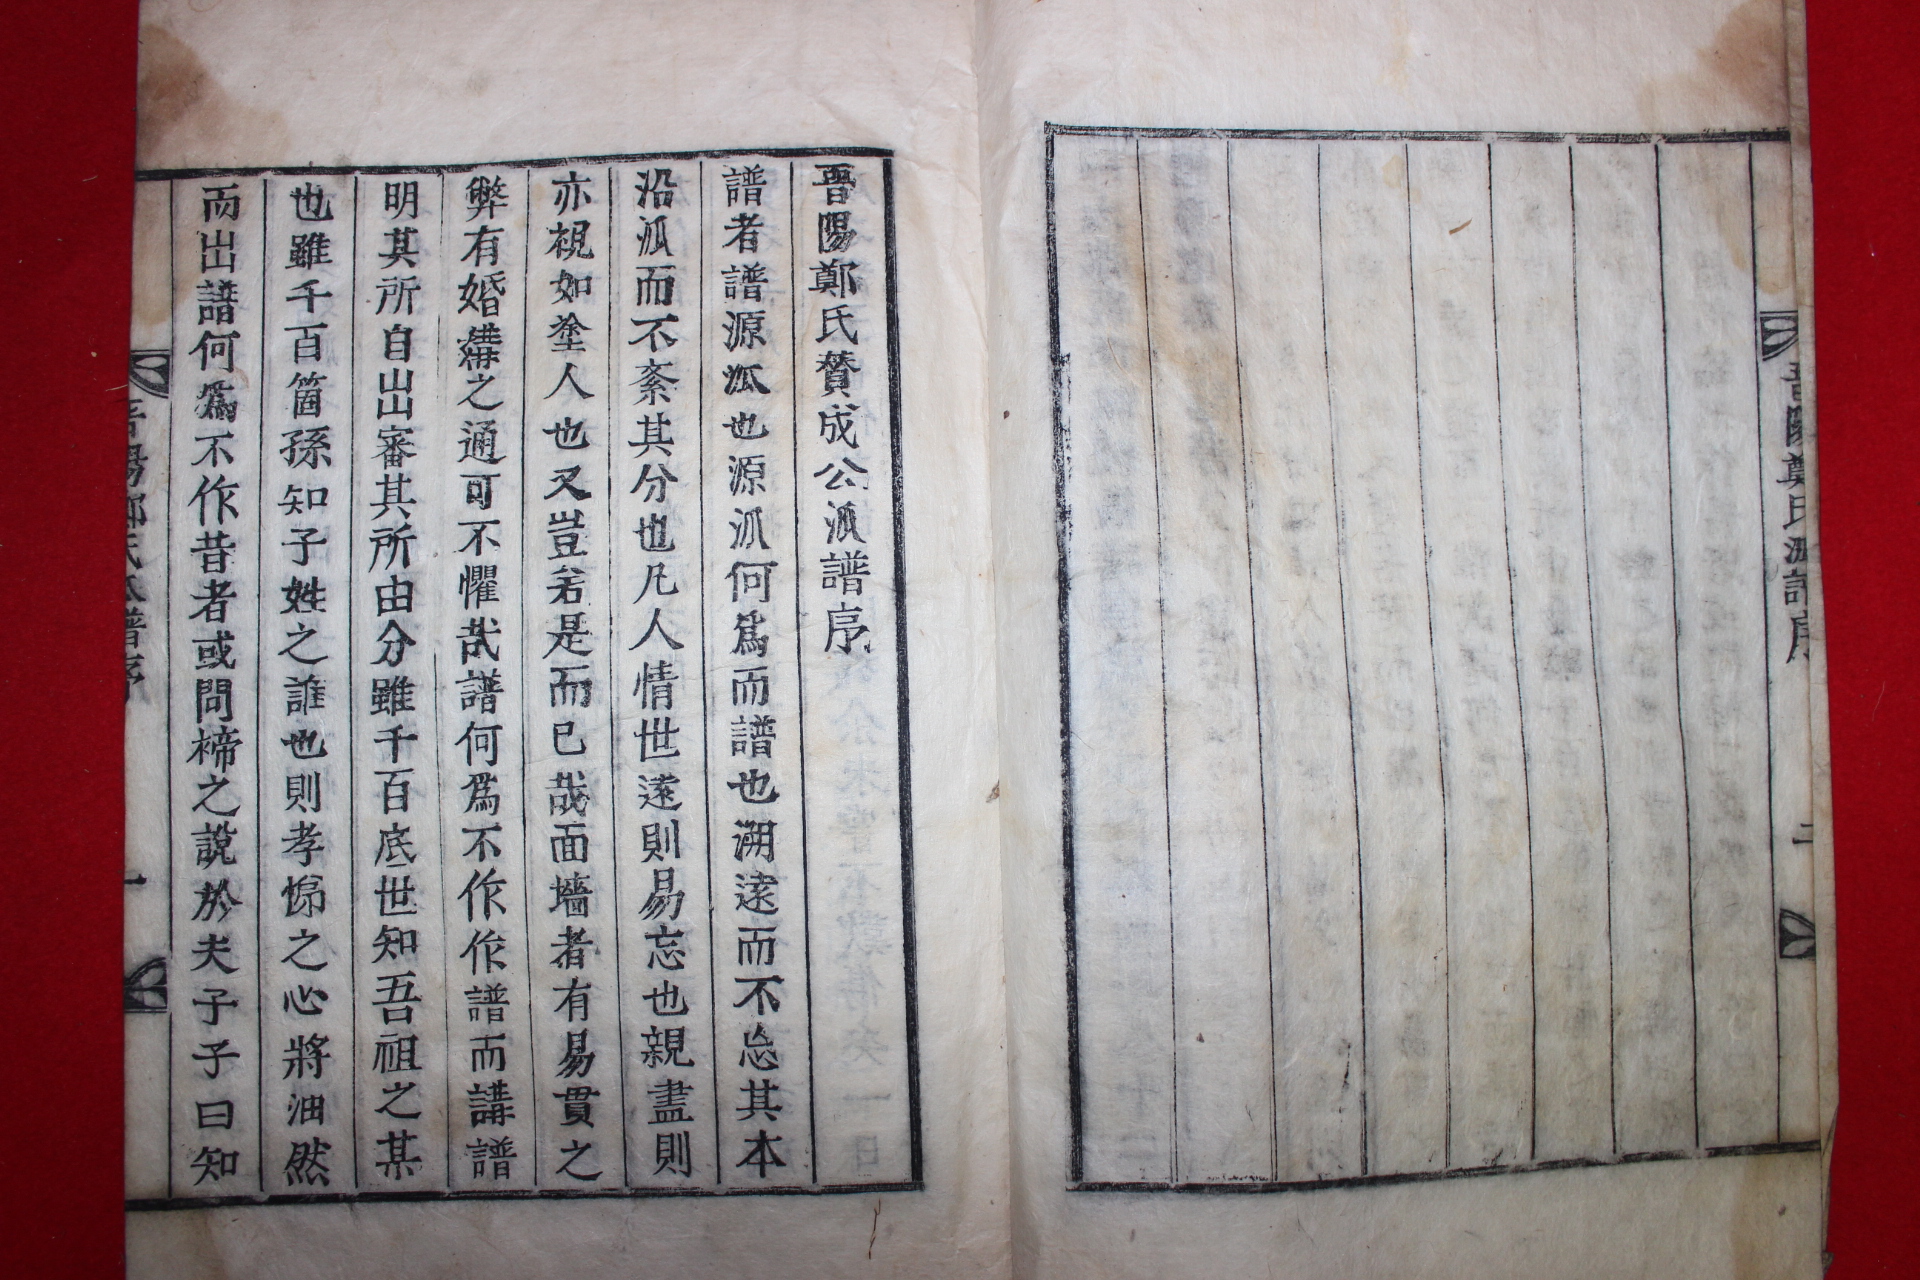 晉陽鄭氏派譜序
二
晉陽鄭氏贊成公派譜序
譜者譜源派也源派何爲而譜也溯遠而不忘其本
沿派而不紊其分也凡人情世遠則易忘也親盡則
亦視如塗人也又豈若是而已哉面墻者有易貫之
弊有婚媾之通可不懼哉譜何爲不作作譜而講譜
明其所自出審其所由分雖千百底世知吾祖之某
也雖千百箇孫知子姓之誰也則孝悌之心將油然
而出譜何爲不作昔者或問禘之說於夫子子曰知
晉陽鄭氏派譜序
一